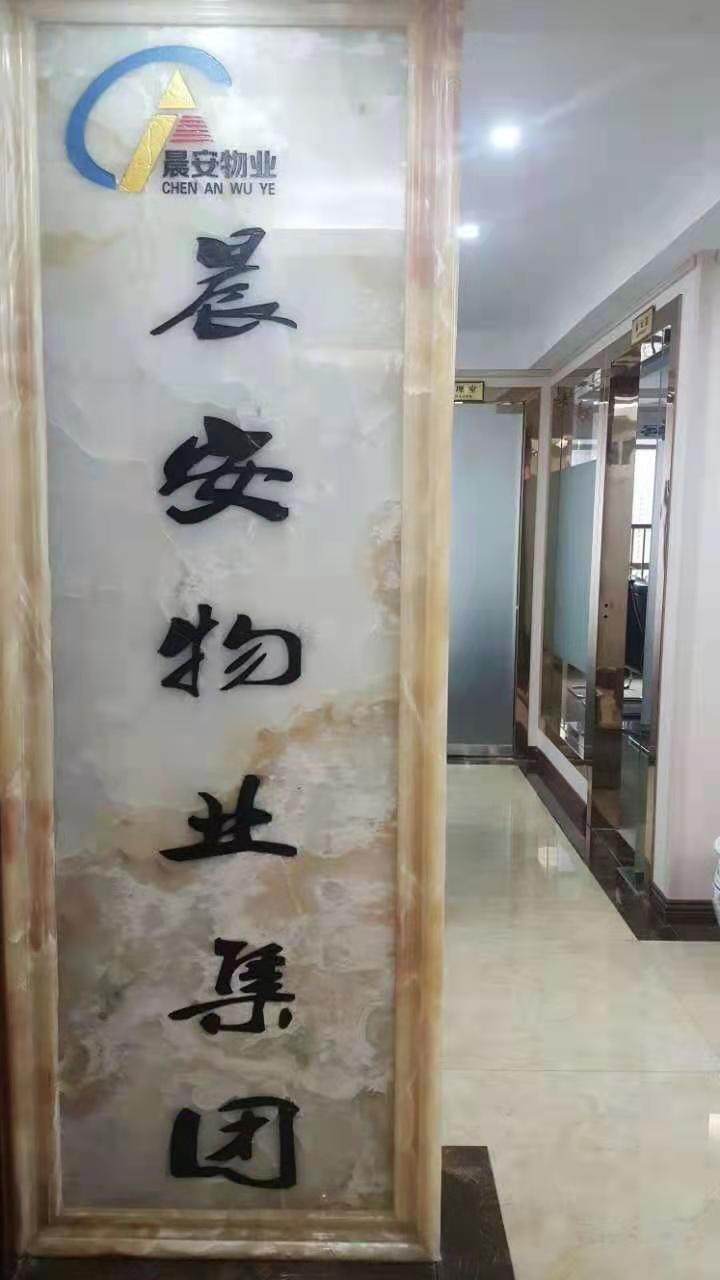 晨安物业
CHEN AN WU YE
晨安物业集团